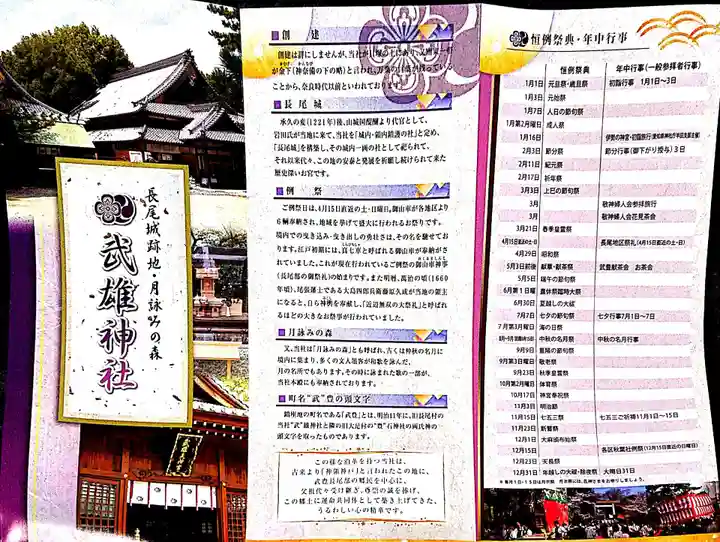 長尾城跡地・月詠みの森
武雄神社
創建
創建は詳にしませんが、当社が
が金下(神奈備の下の略)と言われ、万葉の
ことから、奈良時代以前といわれております。
長尾城
承久の変(1221年)後、山城国醍醐より代官として、
岩田氏が当地に来て、当社を「城内・領内鎮護の社」と定め、
「長尾城」を構築し、その城内一画の社として祀られて、
それ以来代々、この地の安泰と発展を祈願し続けられて来た
歴史深いお宮です。
例祭
ご例祭日は、4月15日直近の土・日曜日。御山車が各地区より
6輛奉納され、地域を挙げて盛大に行われるお祭りです。
境内での曳き込み・曳き出しの勇壮さは、その名を馳せており
ます。江戸初期には、真七車と呼ばれる御山車が奉納が
されていました。これが現在行われているご例祭の御山車神事
(長尾部の御祭礼)の始まりです。また明暦、萬治の頃(1660
年頃)、尾張藩士である大島四郎兵衛藤原久成が当地の領主
になると、自ら神輿を奉献し、「近辺無双の大祭礼」と呼ばれ
るほどの大きなお祭事が行われていました。
月詠みの森
又、当社は「月詠みの森」とも呼ばれ、古くは仲秋の名月に
境内に集まり、多くの文人墨客が和歌を詠んだ、
月の名所でもあります。その時に詠まれた歌の一部が、
当社本殿にも奉納されております。
町名“武”豊の頭文字
鎮座地の町名である「武豊」とは、明治11年に、旧長尾村の
当社“武”雄神社と隣の旧大足村の“豊”石神社の両氏神の
頭文字を取ったものであります。
この様な沿革を持つ当社は、
古来より「神領神戸」と言われたこの地に、
武豊長尾部の郷民を中心に、
父祖代々受け継ぎ、尊崇の誠を捧げ、
この郷土に運命共同体として築き上げてきた、
うるわしい心の精華です。
恒例祭典・年中行事
恒例祭典 年中行事(一般参拝者行事)
1月1日 元旦祭・歳旦祭 初詣行事 1月1日〜3日
1月3日 元始祭
1月7日 人日の節句祭
1月第2月曜日 成人祭
1月16日 伊勢の神宮・初詣旅行(愛知県神社庁半田支部主催)
2月3日 節分祭 節分行事(御下がり授与)3日
2月11日 紀元祭
2月17日 祈年祭
3月3日 上巳の節句祭
3月 敬神婦人会参拝旅行
3月 敬神婦人会花見茶会
3月21日 春季皇霊祭
4月15日直近の土・日 長尾地区祭礼(4月15日直近の土・日)
4月29日 昭和祭
5月3日前後 献華・献茶祭 武豊献茶祭 お茶会
5月5日 端午の節句祭
6月第1日曜 農休祭臨時大祭
6月30日 夏越しの大祓
7月7日 七夕の節句祭 七夕行事7月1日〜7日
7月第3月曜日 海の日祭
中秋の名月祭 中秋の名月行事
9月9日 重陽の節句祭
9月第3月曜日 敬老祭
9月23日 秋季皇霊祭
10月第2月曜日 体育祭
10月17日 神宮奉祝祭
11月3日 明治節
11月15日 七五三祭 七五三ご祈祷11月1日〜15日
11月23日 新嘗祭
12月1日 大麻頒布始祭
12月15日 各区秋葉社例祭(12月15日直近の日曜日)
12月23日 天長祭
12月31日 年越しの大祓・除夜祭 大晦日31日